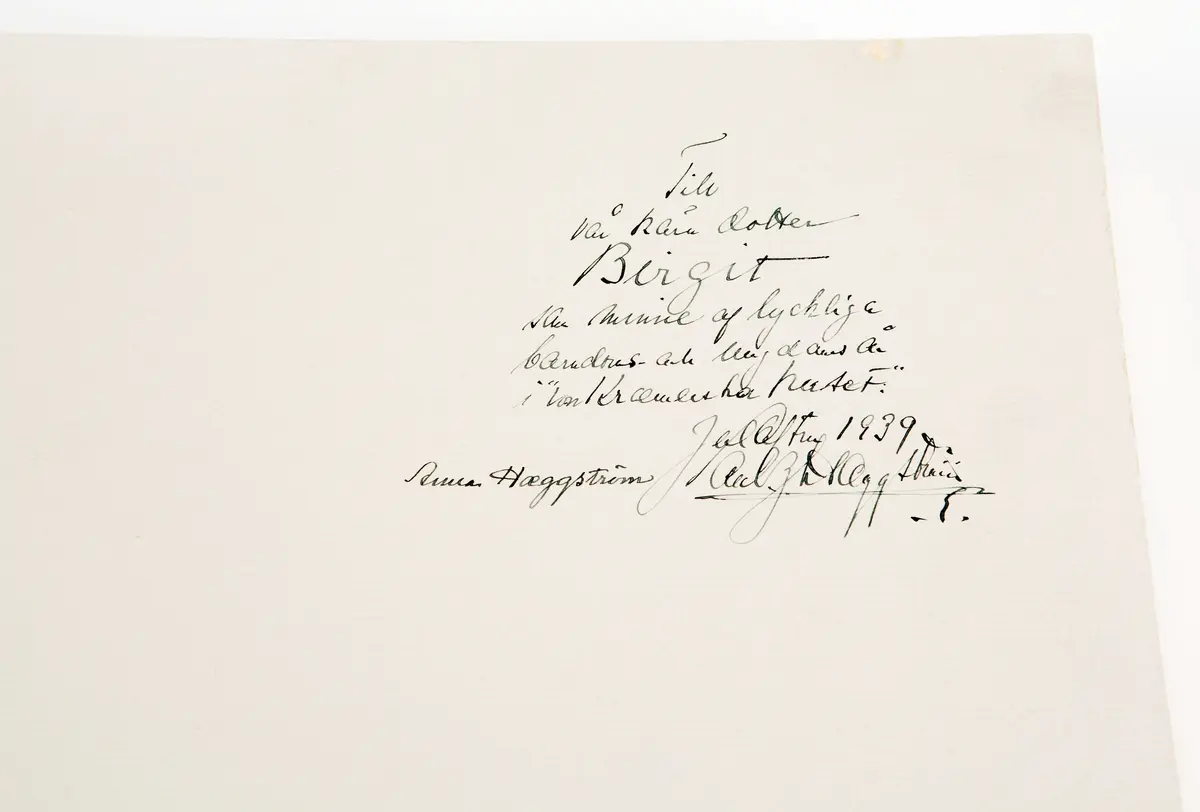 Till
vår kära dotter
Birgit
som minne af lyckliga
barndoms- och ungdoms år
i "von Kræmerska huset."
Julafton 1939
Anna Hæggström Carl Hæggström